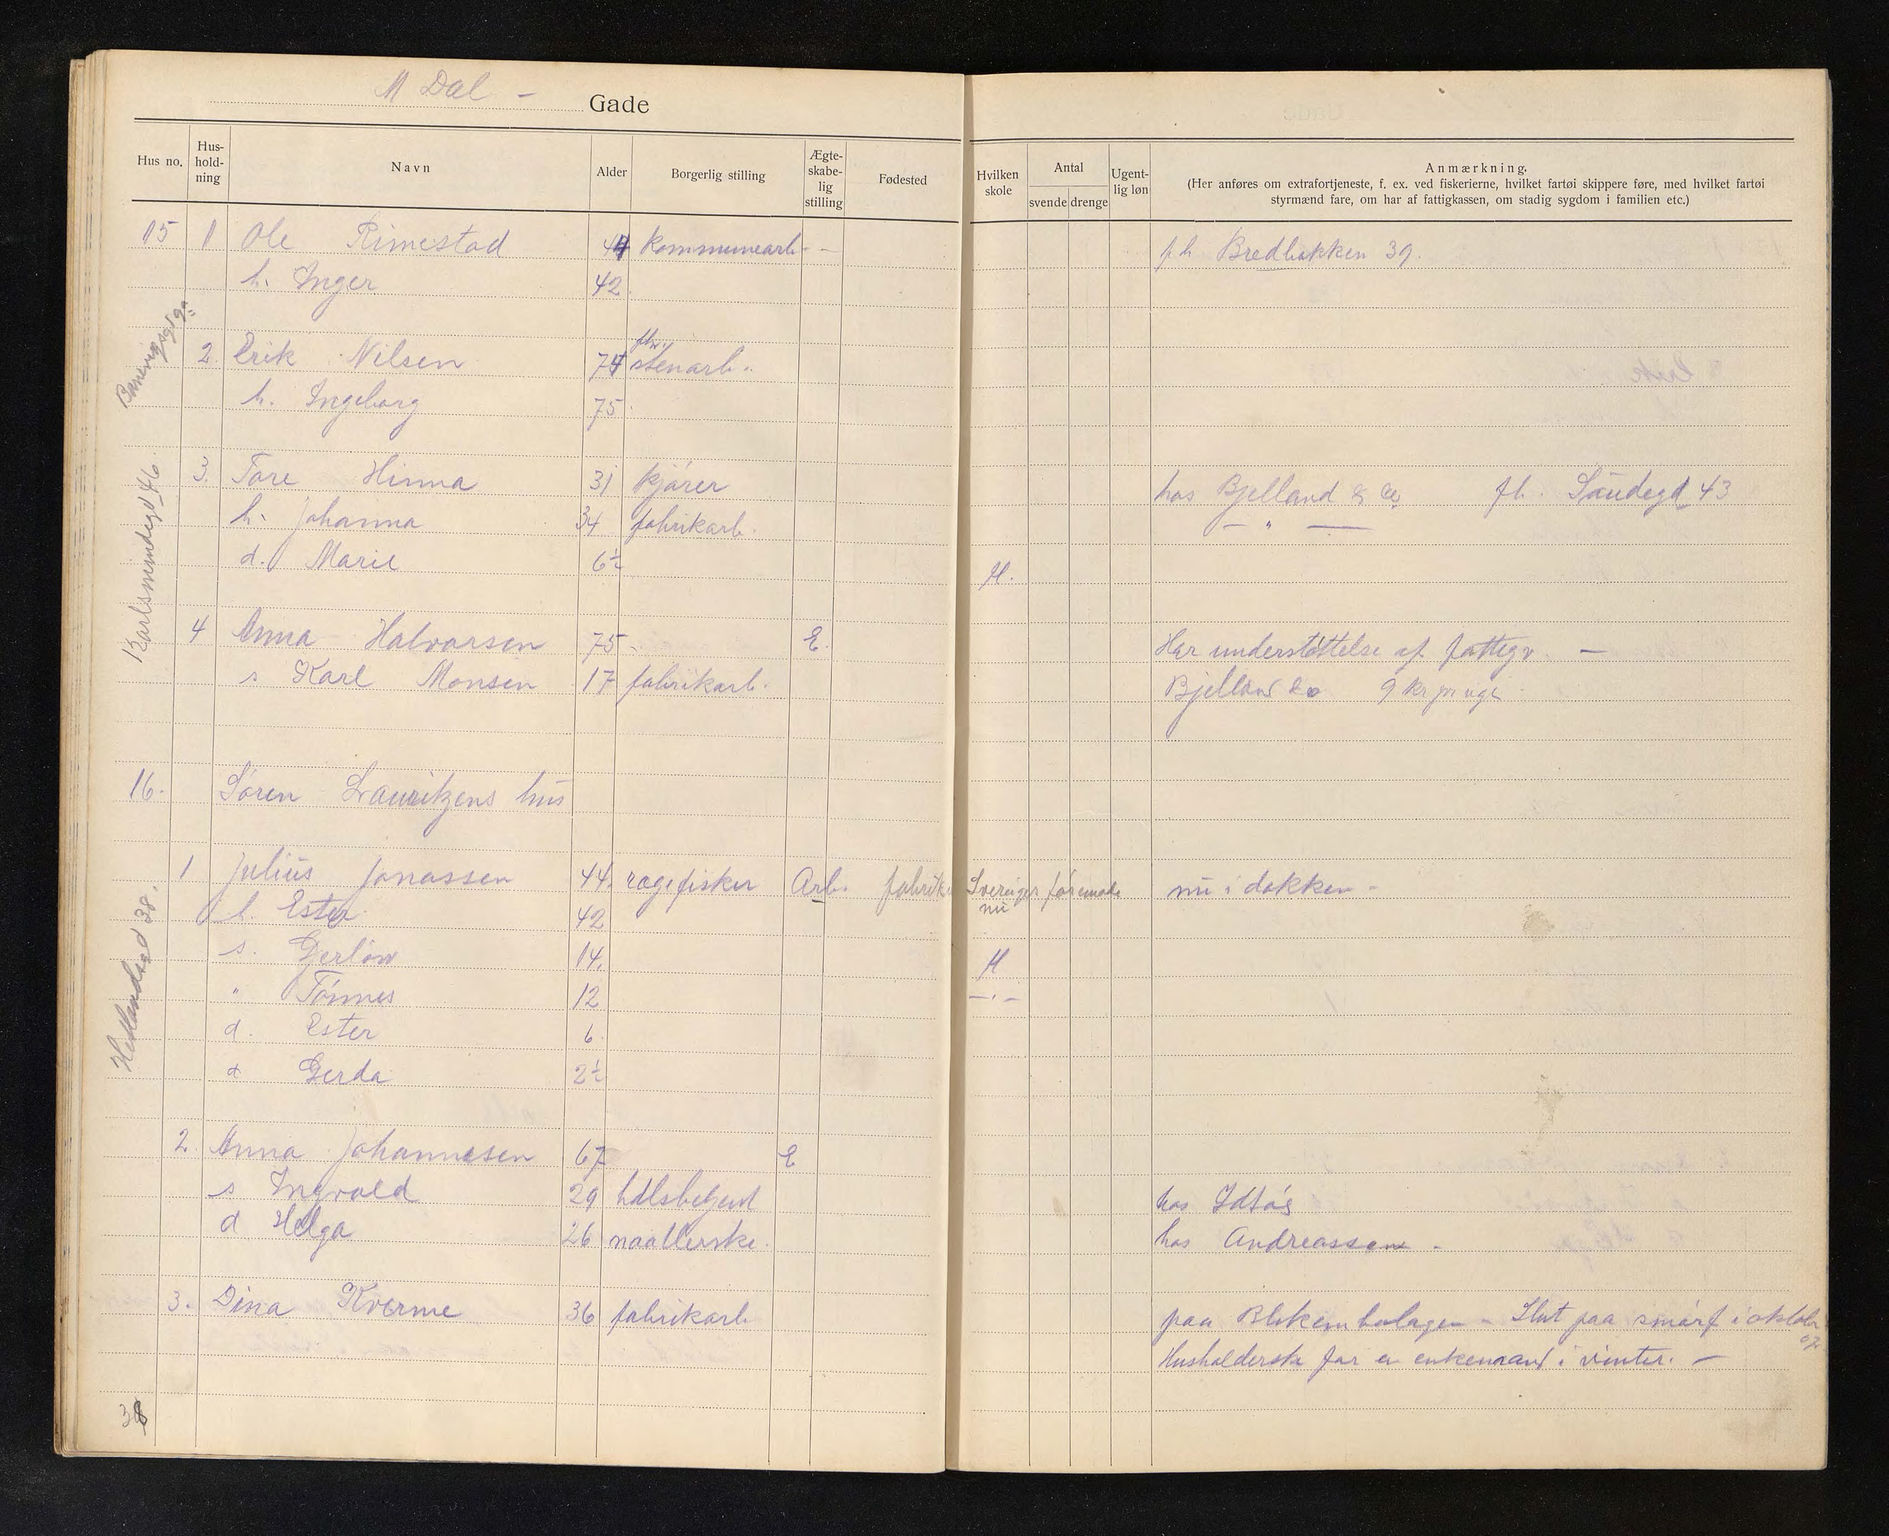 M Dal - Gade
Hus no. Hus-hold-ning Navn Alder Borgerlig stilling Ægte-skabe-lig stilling Fødested Hvilken skole Antal svende drenge Ugent-lig løn Anmærkning.
(Her anføres om extrafortjeneste, f. ex. ved fiskerierne, hvilket fartøi skippere føre, med hvilket fartøi
styrmænd fare, om har af fattigkassen, om stadig sygdom i familien etc.)
15 1 Ole Rimestad 44 kommunearb. - - fh Bredbakken 39.
h. Inger 42
2. Erik Nilsen 74 fhv. stenarb.
h. Ingeborg 75
3. Tore Hinna 31 kjører hos Bjelland & Co fh. Søndegd 43
h. Johanna 34 fabrikarb. — " —
d. Marie 6½ H.
Karlsmindegd 46.
4 Anna Halvorsen 75 E. Har understøttelse af fattigv. —
s Karl Monsen 17 fabrikarb. Bjelland & Co 9 kr pr uge
16. Søren Lauritzens hus
1 Julius Jonassen 44. ragefisker Arb. fabrik Sveriges formode nu nu i dokken -
h. Ester 42
s. Gerlow 14. H
" Tønnes 12 — " —
d. Ester 6
d Gerda 2½
Hetlandsgd 38.
2. Anna Johannesen 67 E
s Ingvald 29 hdlsbetjent hos Idsøs
d Helga 26 naatlerske. hos Andreassen -
3. Dina Kverme 36 fabrikarb paa Blikemballagen - Slut paa smørf i oktober 07.
Husholderske for en enkemand i vinter. —
38